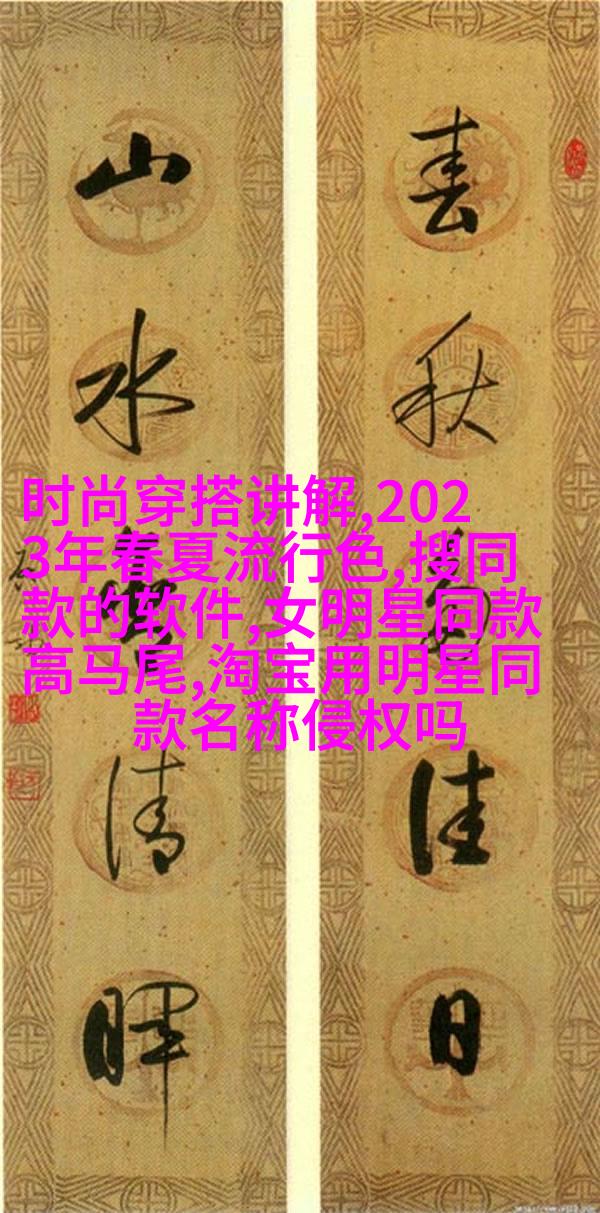 春
秋
佳
日
山
水
清
暉
时尚穿搭讲解,202
3年春夏流行色,搜同
款的软件,女明星同款
高马尾,淘宝用明星同
款名称侵权吗